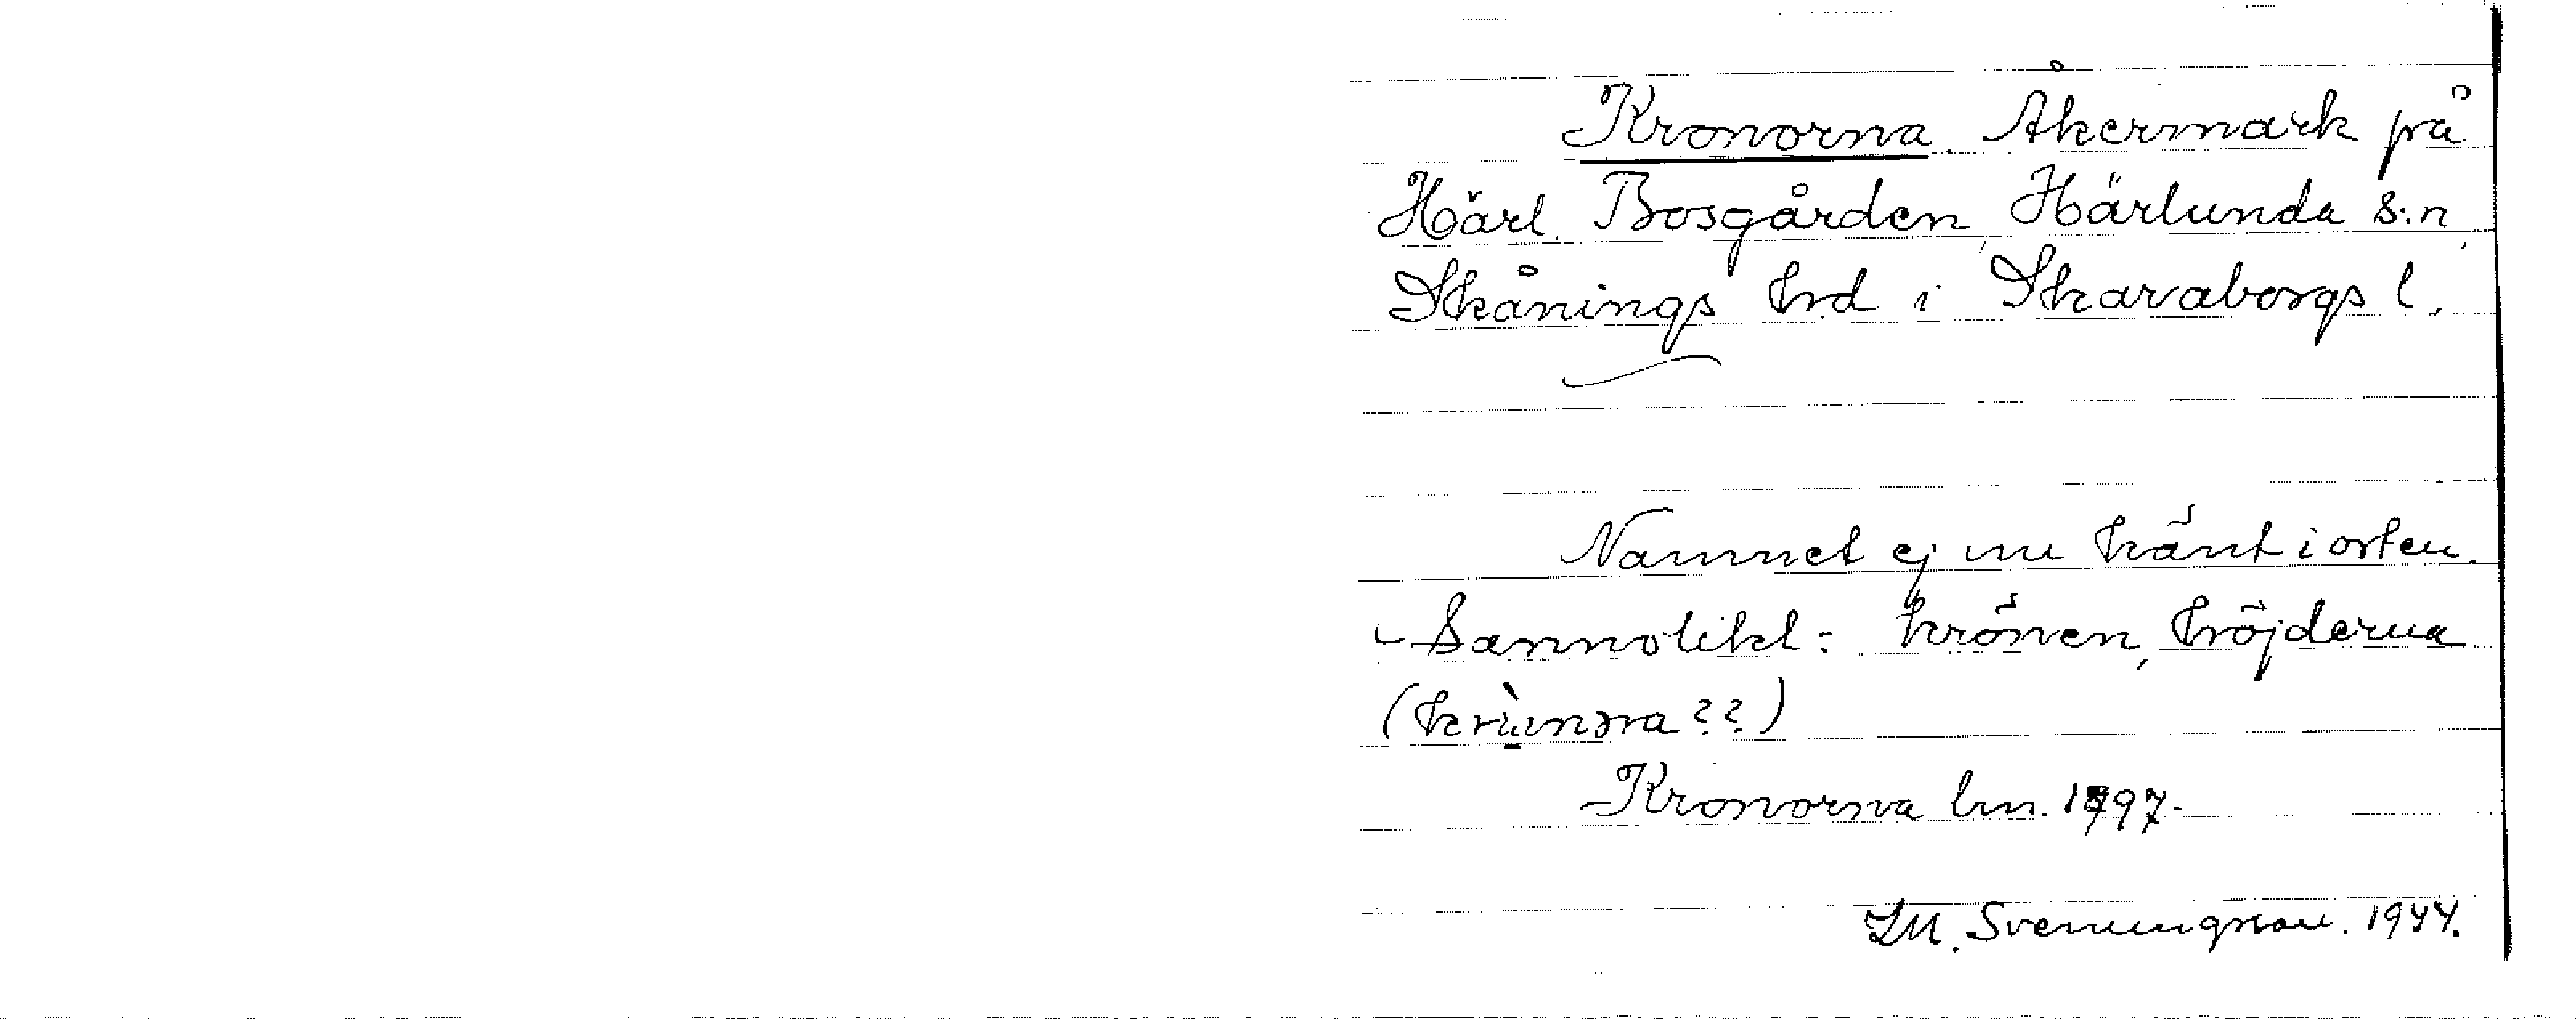 Kronorna. Åkermark på
Härl. Bosgården, Härlunda s:n,
Skånings hrd i Skaraborgs l.
Namnet ej nu känt i orten.
Sannolikt: krönen, höjderna
(krùnɔra??)
Kronorna lm. 1797.
Sveningsson. 1944.